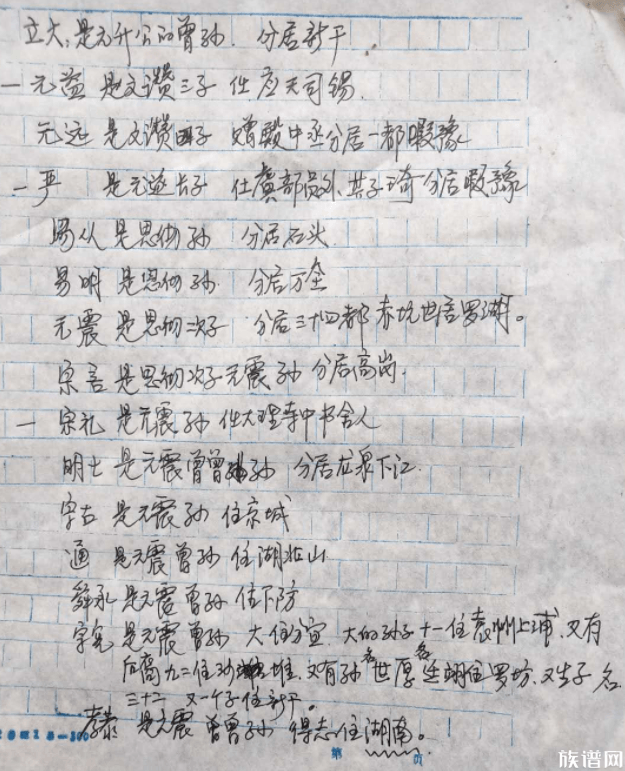 立大:是元升公的曾孙. 分居新干.
一元益 是文讚三子 仕应天司锡.
元远 是文讚四子 赠殿中丞分居一都暇豫
一严 是元逊长子 仕虞部员外. 其子琦分居暇豫
易从 是思彻孙 分居石头
易明 是思彻孙. 分居万全
元震 是思彻次子 分居三十四都赤坑世言罗湖。
宗言 是思彻次子元震孙 分居高岗.
一 宗礼 是元震孙 仕大理寺中书舍人
明士 是元震曾曾孙 分居龙泉下江.
字古 是元震孙 住京城
通 是元震曾孙 住湖北山
舜永 是元震曾孙 住下防
是元震曾孙 大住分宜. 大的孙子十一住袁州上埔. 又有
后裔九二住沙堆. 又有孙名世厚名廷翊住罗坊. 又生子名
三十二 又一个子住新干.
孝泰 是元震曾曾孙 得志住湖南。
第 页
族谱网